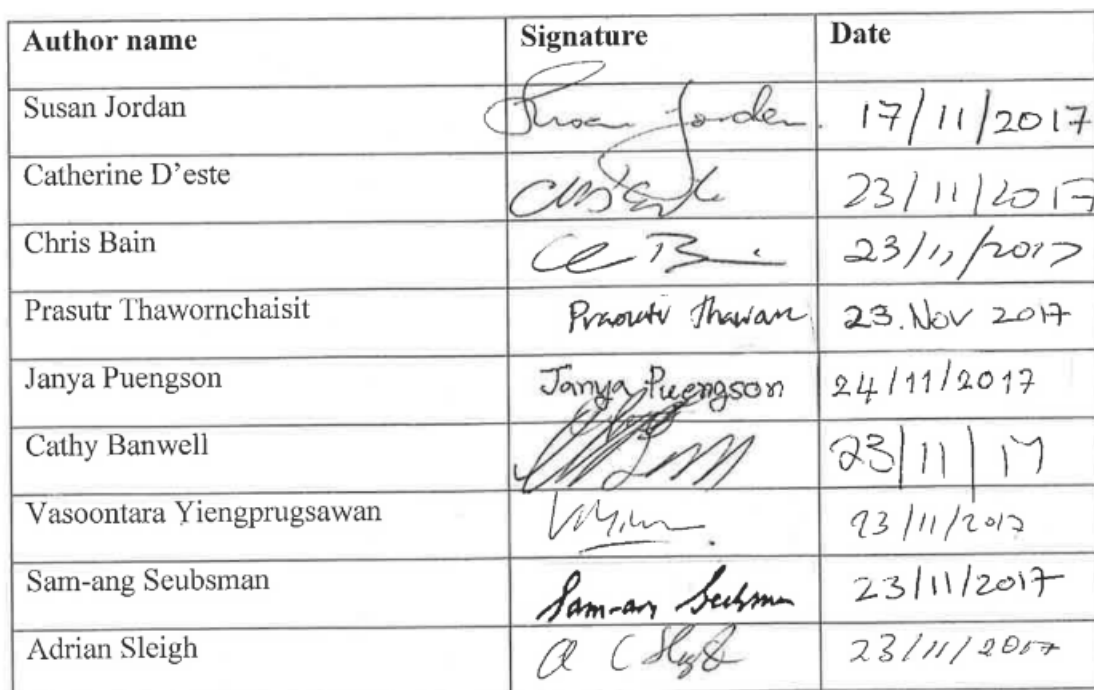 Author name Signature Date
Susan Jordan Susan Jordan 17/11/2017
Catherine D'este 23/11/2017
Chris Bain 23/11/2017
Prasutr Thawornchaisit 23.Nov 2017
Janya Puengson Janya Puengson 24/11/2017
Cathy Banwell 23/11/17
Vasoontara Yiengprugsawan 23/11/2017
Sam-ang Seubsman Sam-ang Seubsman 23/11/2017
Adrian Sleigh 23/11/2017